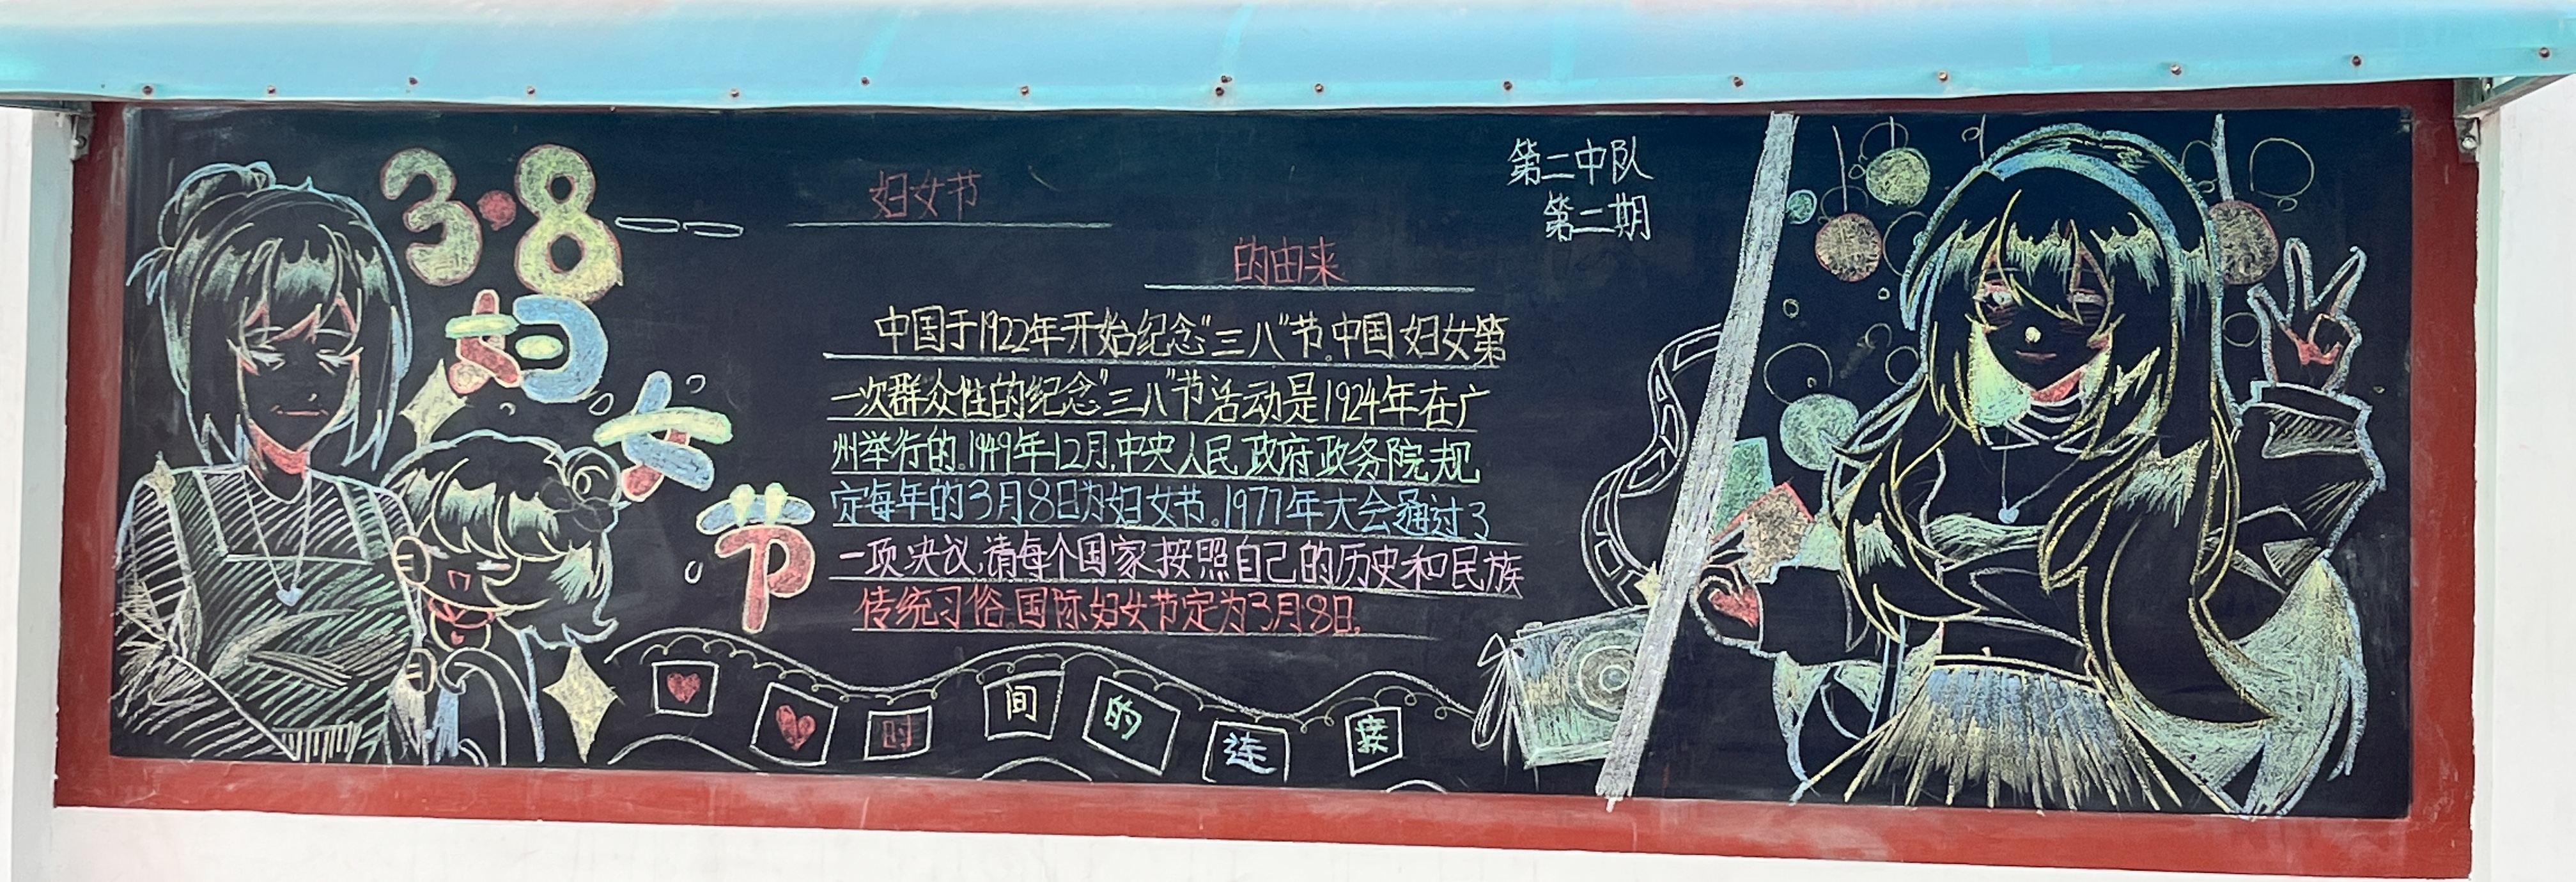 3·8
妇女节
妇女节
的由来
第二中队
第二期
中国于1922年开始纪念"三八"节.中国妇女第
一次群众性的纪念"三八"节活动是1924年在广
州举行的.1949年12月.中央人民政府政务院规
定每年的3月8日为妇女节.1977年大会通过了
一项决议,请每个国家按照自己的历史和民族
传统习俗.国际妇女节定为3月8日.
时间的连接